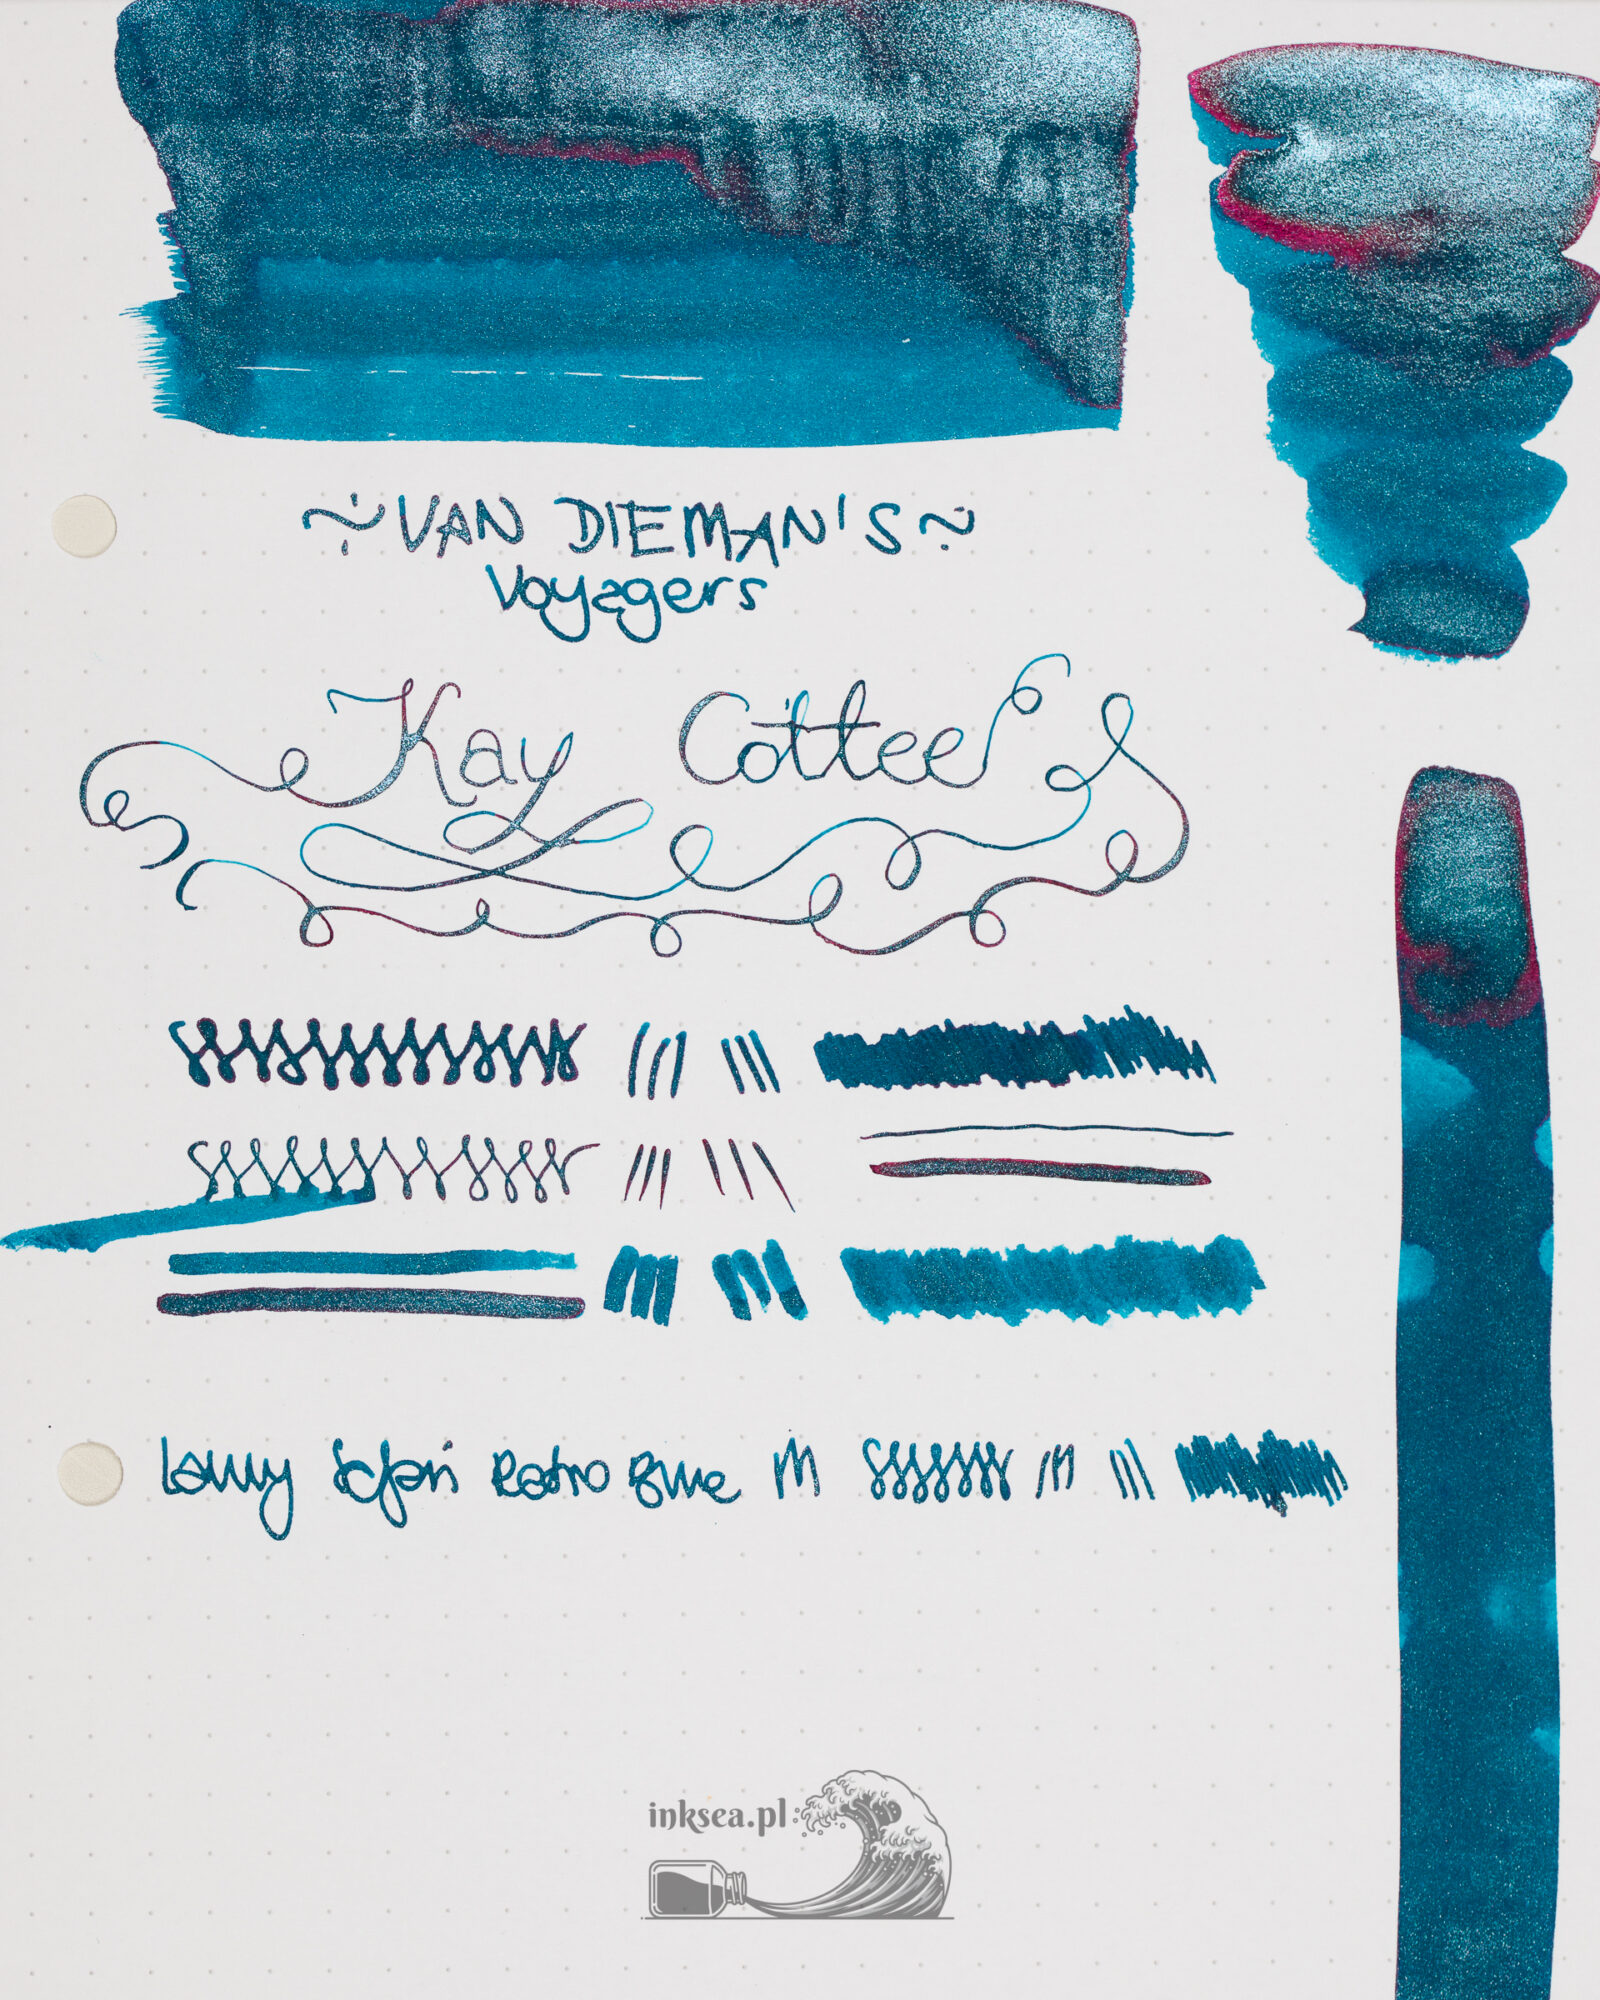 ~VAN DIEMAN'S~
Voyagers
Kay Cottee
Lamy Safari Retro Blue M
inksea.pl